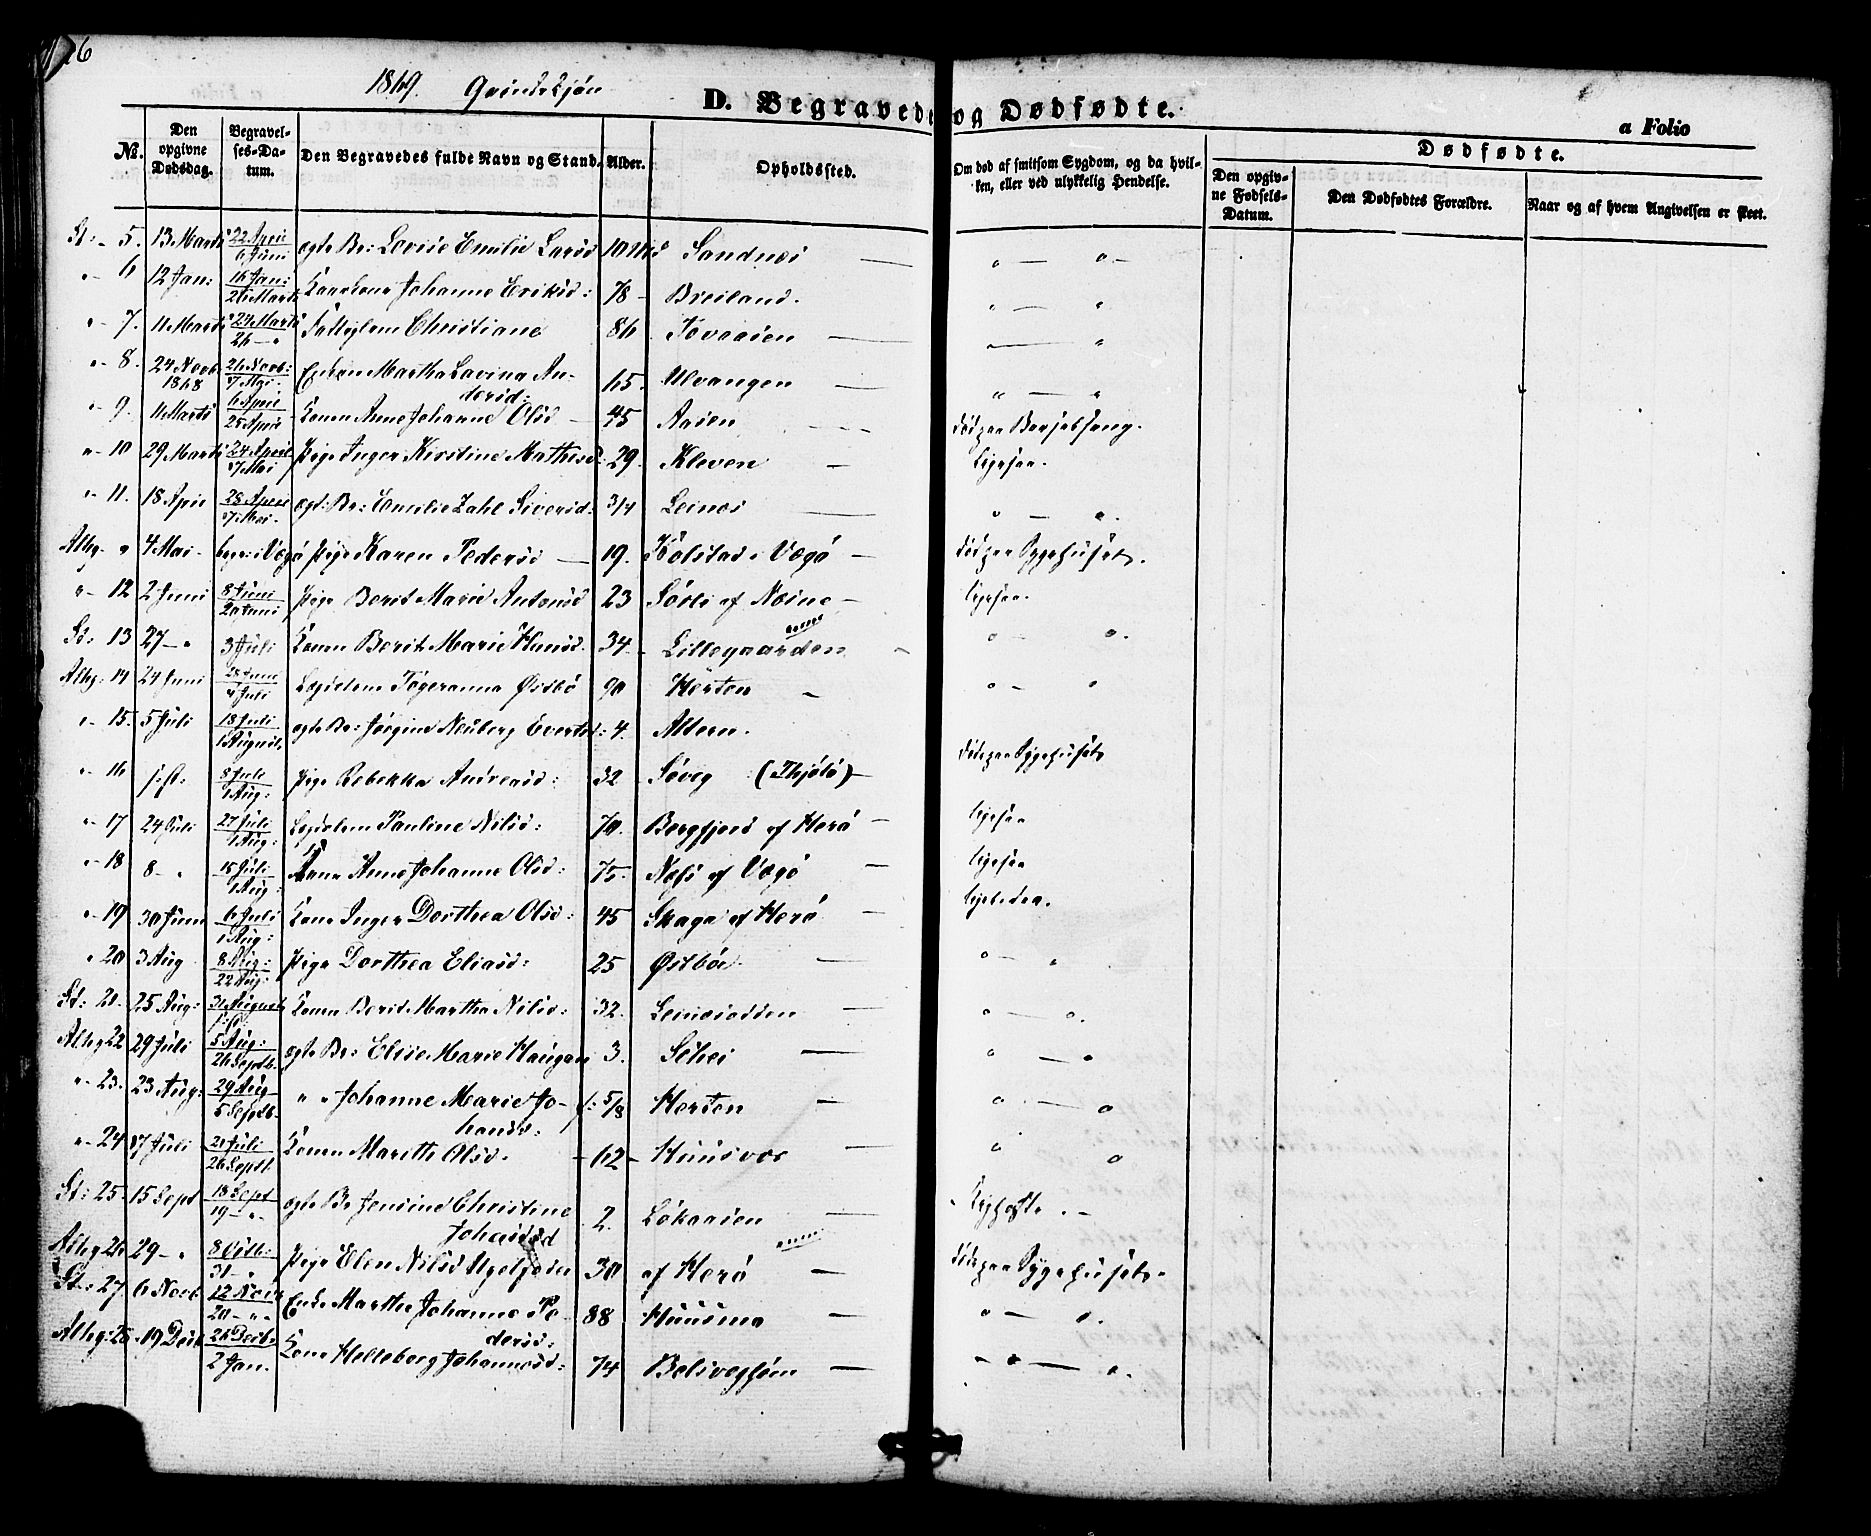 26
1869. Qvindekjøn
D. Begravede og Dødfødte.
a Folio
No.
Den opgivne Dødsdag.
Begravel-ses-Da-tum.
Den Begravedes fulde Navn og Stand.
Alder.
Opholdssted.
Om død af smitsom Sygdom, og da hvil-ken, eller ved ulykkelig Hendelse.
Dødfødte.
Den opgiv-ne Fødsels-Datum.
Den Dødfødtes Forældre.
Naar og af hvem Angivelsen er skeet.
St: - 5. 13 Marts 22 April 6 Juni ægte Br: Lovise Emilie Larsd 10 Md Sandnæs " — "
" 6 12 Jan: 16 Jan: 26 Marts Johanne Eriksd: 78 - Breiland. " — "
" - 7. 11 Marts 24 Marts 26 — " Christiane 86 Tovaasen — "
" - 8. 24 Novb. 1868 26 Novb: 7 Mai. Enken Martha Lavina An-dersd: 65. Ulvangen " — "
" - 9. 11 Marts 6 April 25 April Konen Anne Johanne Olsd — 45 Aasen død paa Barselseng.
" - 10 29 Marts 24 April 7 Mai Pige Inger Kirstine Mathisd: 29. Kleven ligesaa.
" - 11. 18 April 28 April 7 Mai. ægt: Br: Emilie Zahl Siversd: 3/4 Leines " — "
Alhg. " 4 Mai - begr: i Vægø Pige Karen Pedersd — 19. Holstad i Vægø — død paa Sygehuset.
" - 12 2 Juni 8 Juni 20 Juni Pige Berit Marie Antonsd 23 Sørli af Næsne — ligesaa.
St: 13 27 — " 3 Juli Konen Berit Marie Hansd. 34 - Lillegaarden " "
Alhg: 14 24 Juni 28 Juni 4 Juli Lægdslem Ingeranna Østbø 90 Hersten " — "
" - 15. 5 Juli 18 Juli 1 August. ægte Br: Jørgine Neuberg Evertsd: 4. Altern.
" - 16 8 Juli 1 Aug: Pige Rebekka Andreasd: 32 Søveg (Thjøtø) — død paa Sygehuset
" - 17 24 Juli 27 Juli 1 Aug: Lægdslem Pauline Nilsd: 70. Bergfjord af Herø — ligesaa
" - 18 8 — " 15 Juli 1 Aug: Kone Anne Johanne Olsd: 75. Næss af Vægø — ligesaa
" - 19 30 Juni 6 Juli 1 Aug: Kone Inger Dorthea Olsd: 45 Skaga af Herø — ligeledes.
" 20 3 Aug 8 Aug: 22 Aug: Pige Dorthea Eliasd: 25 Østbøe — " — "
St: 21. 25 Aug: 31 August Konen Berit Martha Nilsd: 32. Leinesodden — " — "
Alhg 22 29 Juli 5 Aug: 26 Septb. ægte Br: Elise Marie Haugan 3. Sthei — " — "
" - 23. 23 Aug: 29 Aug 5 Septb. " " Johanne Marie Jo-hansd: 5/8 Hersten — " — "
" - 24 17 Juli 21 Juli 26 Septb. Konen Marith Olsd. - 62 - Huusvær — " "
St: 25. 15 Sept 18 Sept 19 — " ægte Br Jensine Christine Johansd 2. Løkaasen —
Alhg 26 29 — " 8 Octb: 31 — " Pige Elen Nilsd 30 af Herø — død paa Sygehuset.
St: 27 6 Novb. 12 Novb 20 — " Enke Marthe Johanne Pe-dersd: 88 Huusmo — " — "
Alhg: 28 19 Decb 26 Decb. 2 Jan. Kone Helleborg Johannesd: 74 Belsvegjøen — " — "